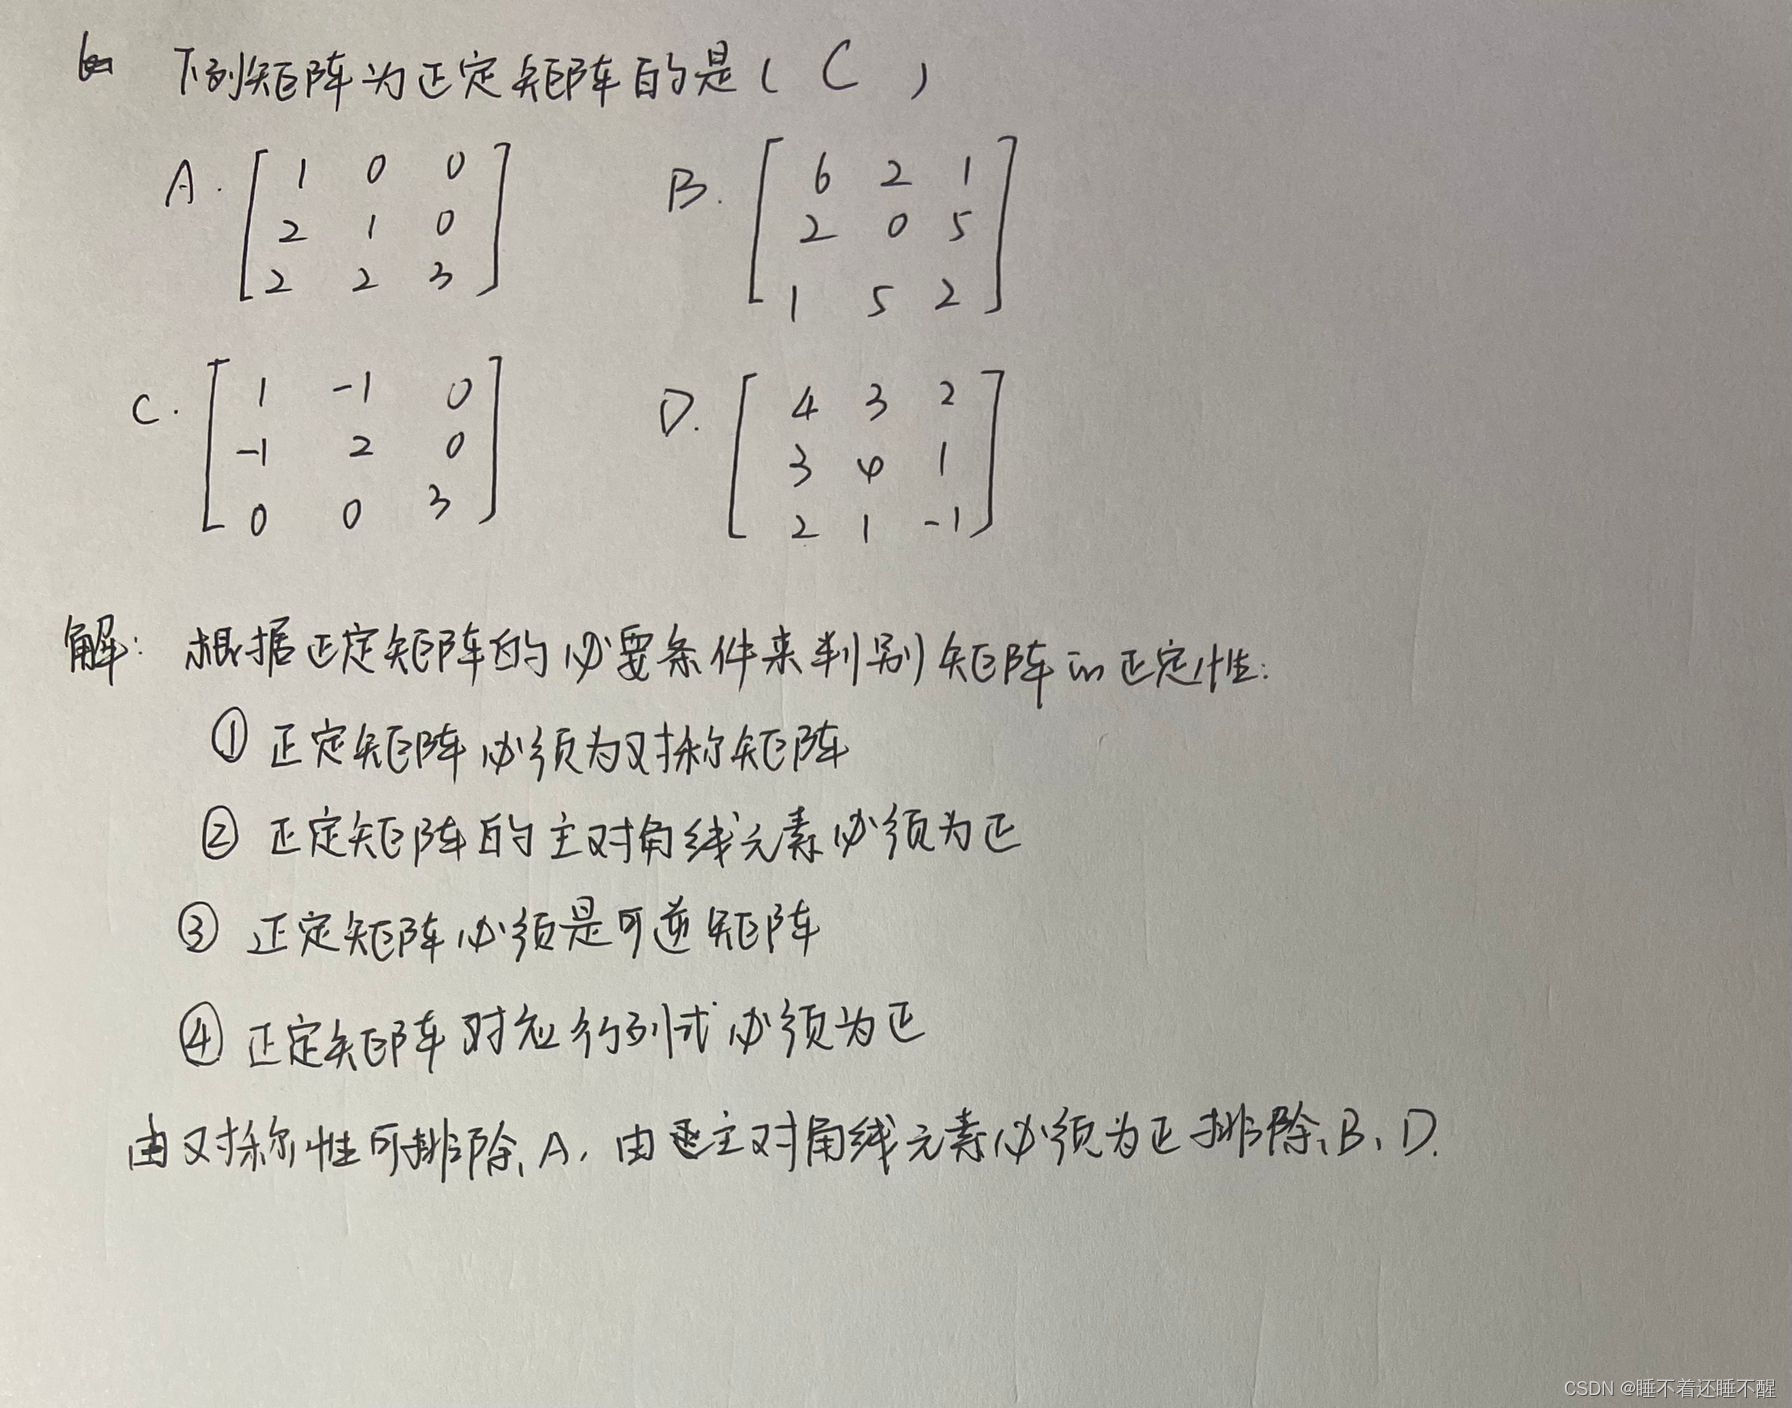 6 下列矩阵为正定矩阵的是( C )
A. [ 1 0 0 B. [ 6 2 1
2 1 0 2 0 5
2 2 3 ] 1 5 2 ]
C. [ 1 -1 0 D. [ 4 3 2
-1 2 0 3 4 1
0 0 3 ] 2 1 -1 ]
解: 根据正定矩阵的必要条件来判别矩阵的正定性:
① 正定矩阵必须为对称矩阵
② 正定矩阵的主对角线元素必须为正
③ 正定矩阵必须是可逆矩阵
④ 正定矩阵对应行列式必须为正
由对称性可排除A, 由主对角线元素必须为正排除B、D.
CSDN @睡不着还睡不醒